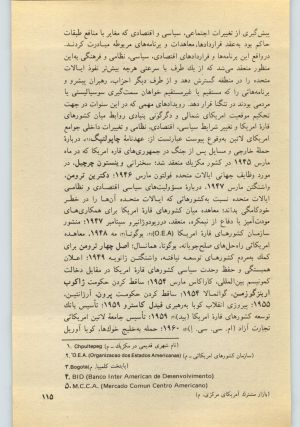 پیش‌گیری از تغییرات اجتماعی، سیاسی و اقتصادی که مغایر با منافع طبقات
حاکم بود به‌عقد قراردادها، معاهدات و برنامه‌های مربوطه مبادرت کردند.
درواقع این برنامه‌ها و قراردادهای اقتصادی، سیاسی، نظامی و فرهنگی به‌این
منظور منعقد می‌شد که از یك طرف با سرعتی هرچه بیش‌تر نفوذ ایالات
متحده را در منطقه گسترش دهد و از طرف دیگر احزاب، رهبران پیشرو و
برنامه‌هائی را که مستقیم یا غیرمستقیم خواهان سمت‌گیری سوسیالیستی یا
مردمی بودند در تنگنا قرار دهد. رویدادهای مهمی که در این سنوات در جهت
تحکیم موقعیت امریکای شمالی و دگرگونی بنیادی روابط میان کشورهای
قارهٔ امریکا و تغییر شرایط سیاسی، اقتصادی، نظامی و تغییرات داخلی جوامع
امریکای لاتین به‌وقوع پیوست عبارتست از: عهدنامهٔ چاپولتپیگ۱، دربارهٔ
حملهٔ خارجی و مسایل پس از جنگ در جمهوری‌های قاره امریکا که در ماه
مارس ۱۹۴۵ در کشور مکزیك منعقد شد؛ سخنرانی وینستون چرچیل، در
مورد وظایف جهانی ایالات متحده فولتون مارس ۱۹۴۶؛ دکترین ترومن،
واشنگتن مارس ۱۹۴۷، دربارهٔ مسؤولیت‌های سیاسی اقتصادی و نظامی
ایالات متحده نسبت به‌کشورهائی که ایالات متحده آن‌ها را در خطر
خودکامگی بداند؛ معاهده میان کشورهای قارهٔ امریکا برای همکاری‌های
دوجانبه و دفاع از نیمکره، منعقد، دریودوژانیرو سپتامبر ۱۹۴۷؛ منشور
سازمان کشورهای قارهٔ امریکا (O.E.A)۲، بوگوتا۳ مه ۱۹۴۸، معاهده
امریکائی راه‌حل‌های صلح‌جویانه، بوگوتا، همانسال؛ اصل چهار ترومن برای
کمك به‌مردم کشورهای توسعه نیافته، واشنگتن ژانویه ۱۹۴۹؛ اعلان
همبستگی و حفظ وحدت سیاسی کشورهای قارهٔ امریکا در مقابل دخالت
کمونیسم بین‌المللی، کاراکاس مارس ۱۹۵۴؛ ساقط کردن حکومت ژاکوب
آربنزگوزمن، گواتمالا ۱۹۵۴؛ ساقط کردن حکومت پرون، آرژانتین،
۱۹۵۵؛ پیروزی انقلاب کوبا به‌رهبری فیدل کاسترو ۱۹۵۹؛ تأسیس بانك
توسعه کشورهای قارهٔ امریکا (بید)۴ ۱۹۵۹؛ تأسیس جامعهٔ لاتین امریکائی
تجارت آزاد (ام. سی. سی. آ)۵ ۱۹۶۰؛ حمله به‌خلیج خوك‌ها، کوبا آوریل
۱. Chpultepeg (نام شهری قدیمی در مکزیك ـ م)
۲. O.E.A. (Organizacao dos Estados Americanas) (سازمان کشورهای امریکائی ـ م)
3. Bogotá (پایتخت کلمبیا. م)
۴. BID (Banco Inter American de Desenvolvimento)
۵. M.C.C.A. (Mercado Comun Centro Americano)
(بازار مشترك آمریکای مرکزی. م)
۱۱۵